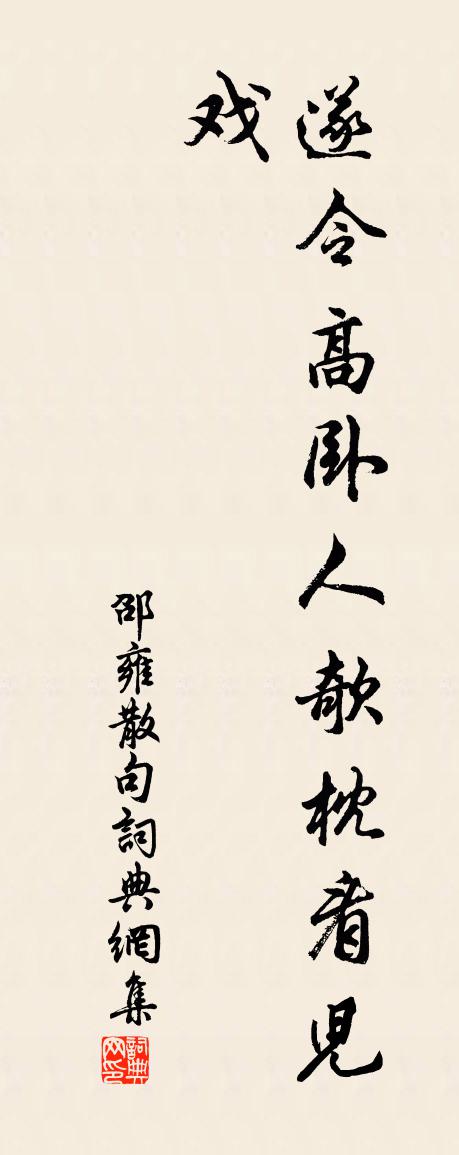 遂令高卧人欹枕看児
戏
邵雍散句詞典網集
詞典网印